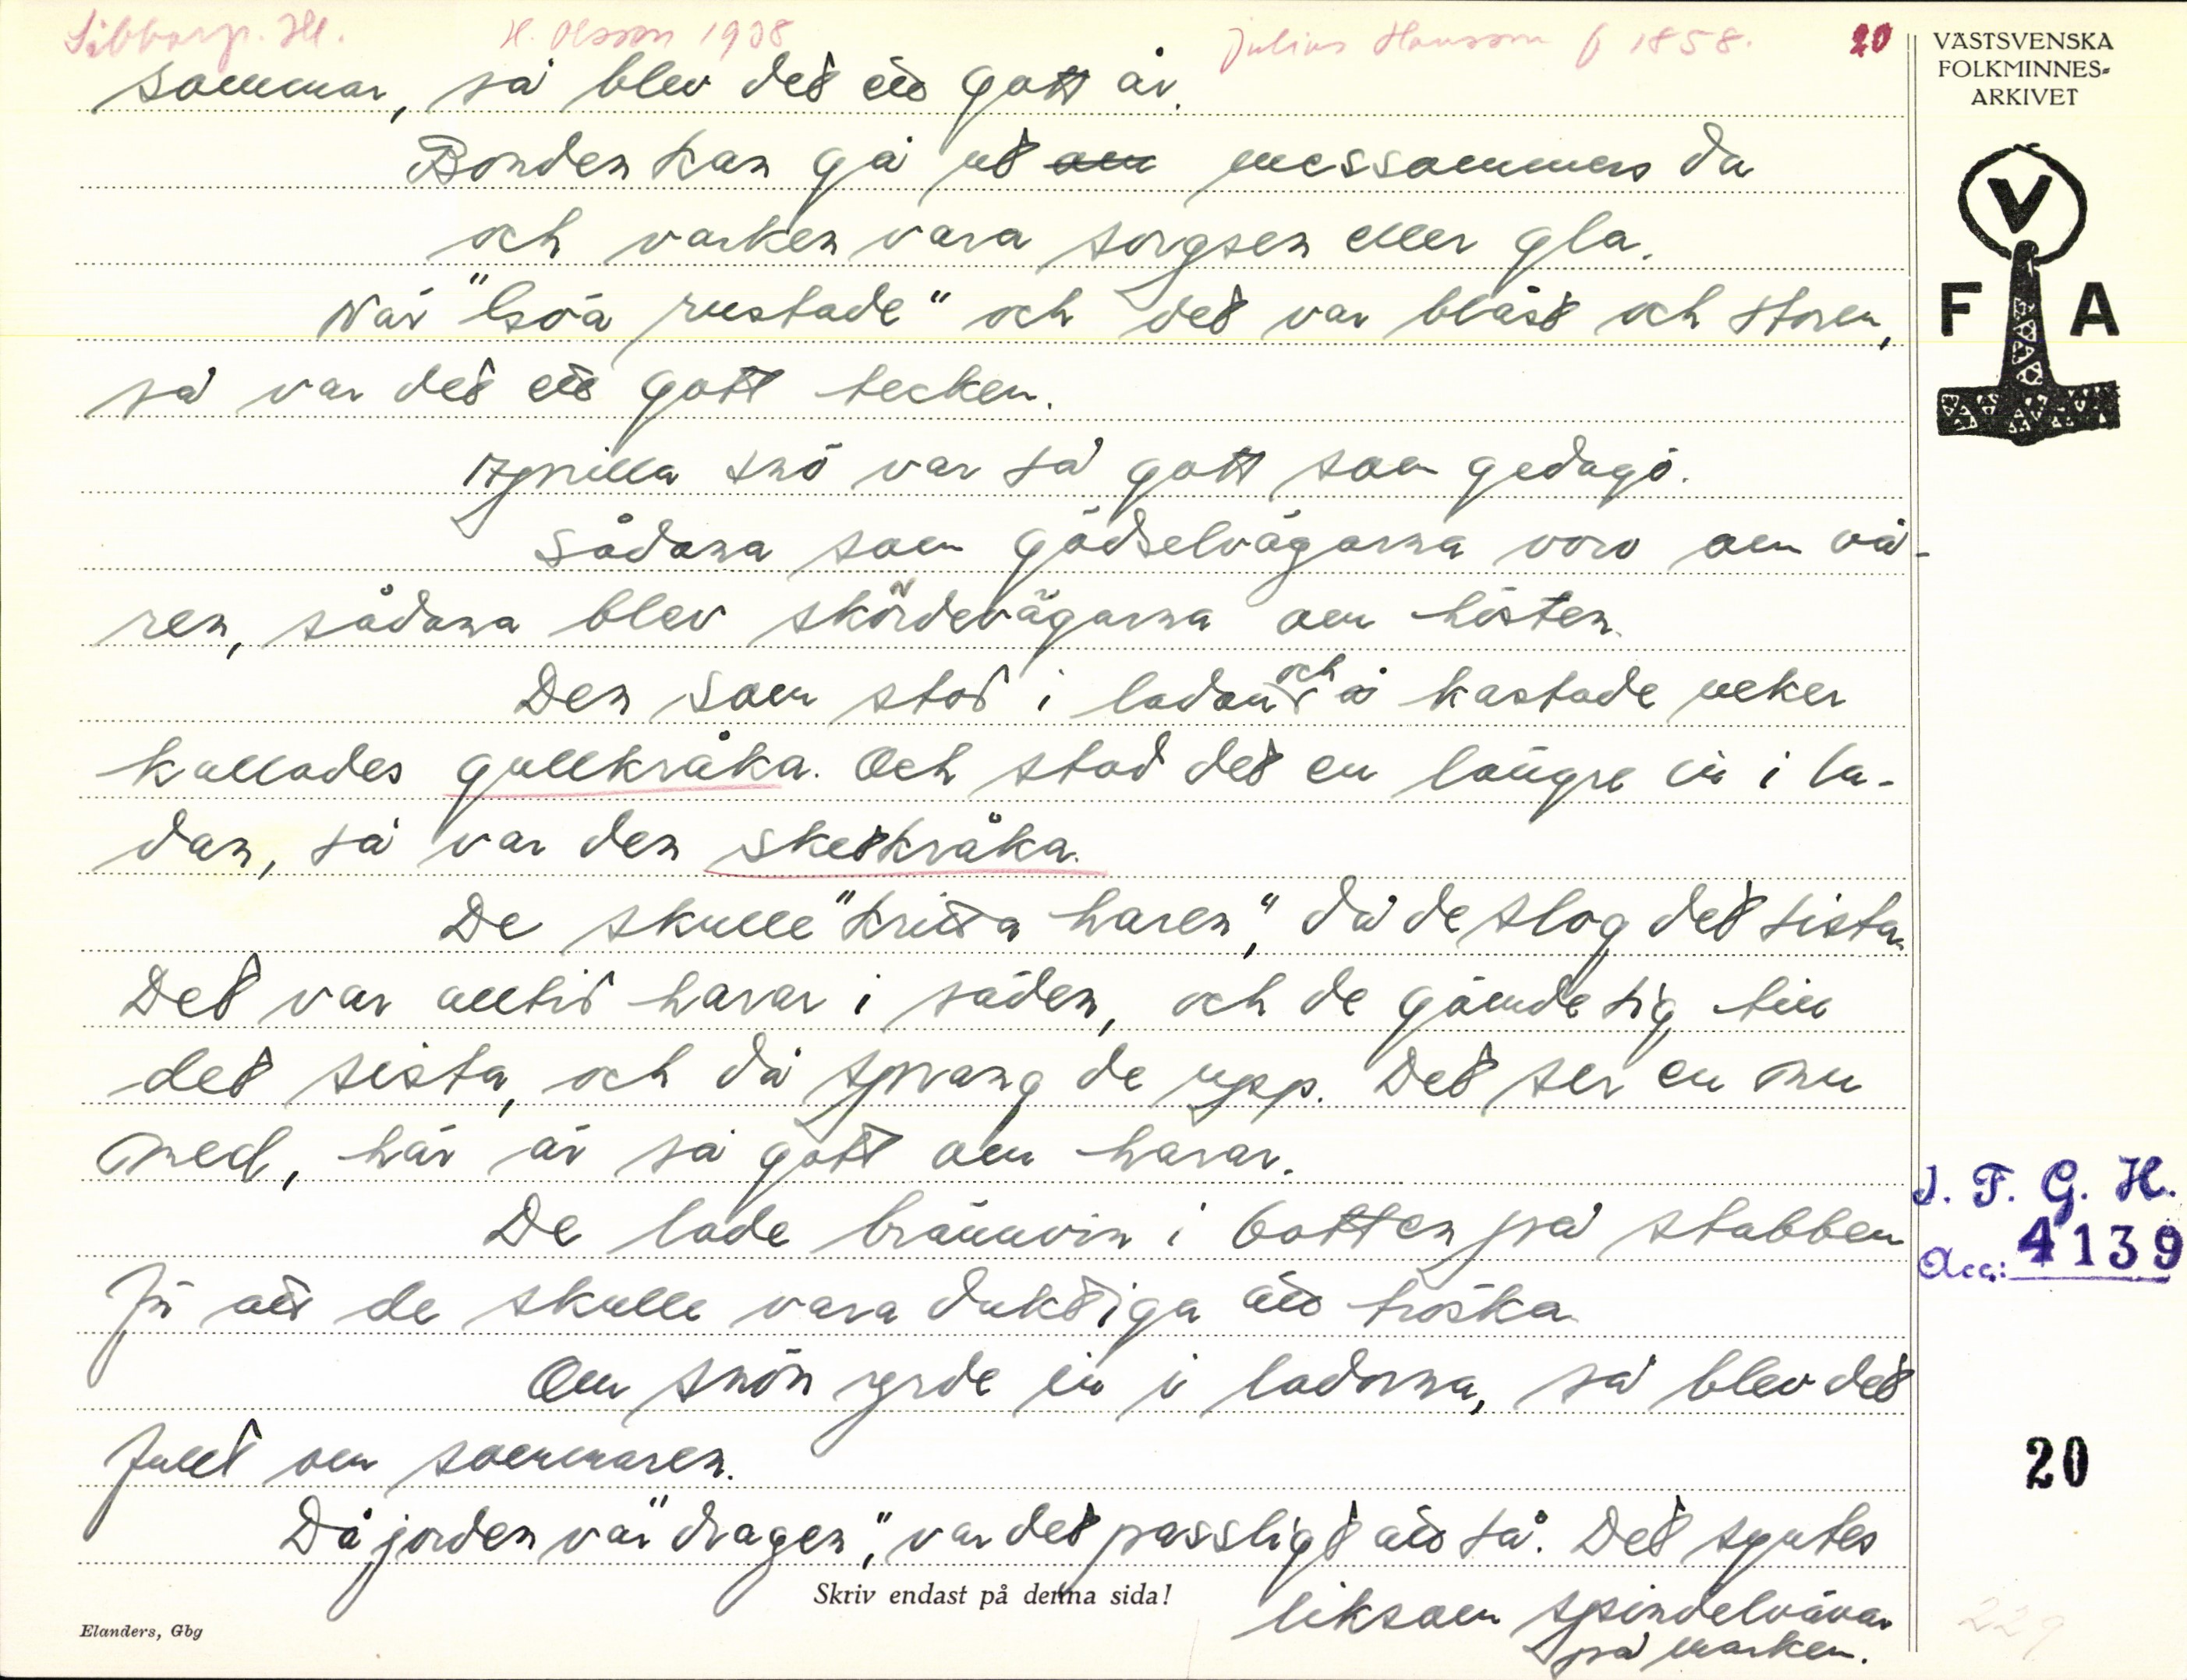 Sibbarp. Hl. H. Olsson 1938 Julius Hansson f 1858. 20
sommar, så blev det ett gott år.
Bonden kan gå ut om messommers da
och varken vara sorgsen eller gla.
När "Göa rustade" och det var blåst och storm,
så var det ett gott tecken.
Aprilla snö var så gott som gedagö.
Sådana som gödselvägarna voro om vå-
ren, sådana blev skördevägarna om hösten.
Den som stod i ladan och kastade neker
kallades gullkråka. Och stod det en längre in i la-
dan, så var den sketkråka.
De skulle "hritta haren", då de slog det sista.
Det var alltid harar i säden, och de gömde sig till
det sista, och då sprang de upp. Det ser en nu
med, här är så gott om harar.
De lade brännvin i botten på stabben
för att de skulle vara duktiga att tröska.
Om snön yrde in i ladorna, så blev det
fullt om sommaren.
Då jorden var "dragen", var det passligt att så. Det syntes
liksom spindelvävar
på marken.
Skriv endast på denna sida!
Elanders, Gbg
VÄSTSVENSKA
FOLKMINNES-
ARKIVET
V
F A
I. F. G. H.
Acc: 4139
20
229